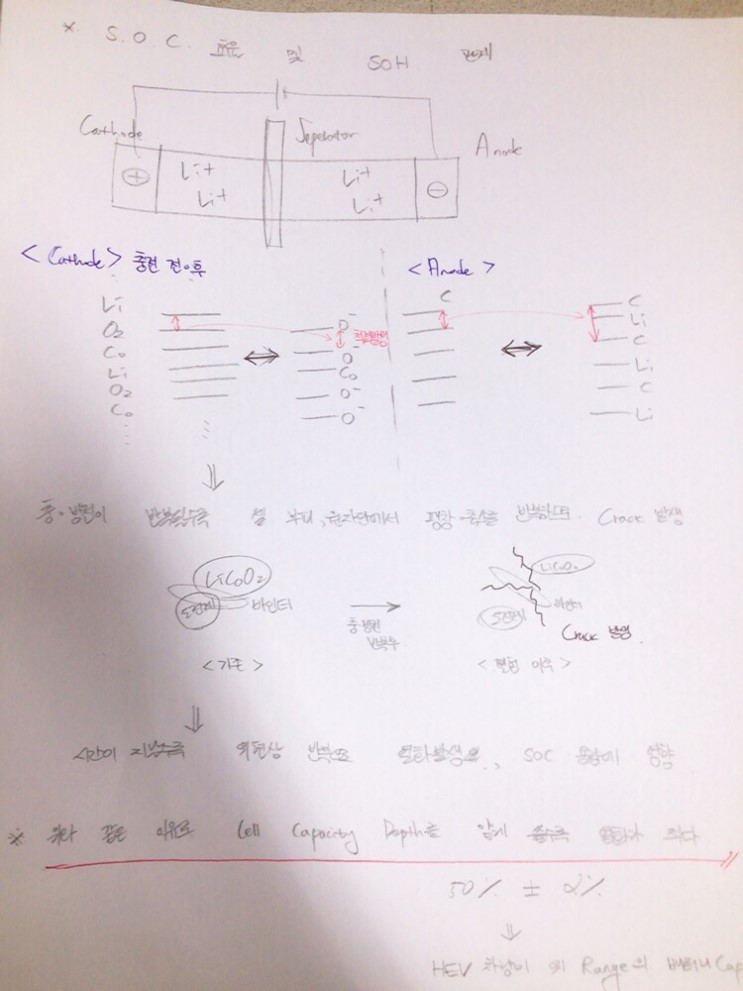 ※ S.O.C. 효율 및 SOH 관계
Cathode Seperator Anode
⊕ Li+ Li+ ⊖
Li+ Li+
<Cathode> 충전 전·후 <Anode>
Li C C
O2 O⁻ Li
Co O⁻ C
Li Co Li
O2 O⁻ C
Co O⁻ Li
충·방전이 반복될수록 셀 부피, 원자단에서 팽창·수축을 반복하면 Crack 발생
LiCoO2 LiCoO2
도전제 바인더 충·방전 반복후 도전제 바인더
Crack 발생
<기존> <변형 이후>
시간이 지날수록 위현상 반복으로 열화발생으로, SOC 용량에 영향
※ 위와 같은 이유로 Cell Capacity Depth를 얕게 쓸수록 열화가 적다
50% ± 2%
HEV 차량이 위 Range의 배터리 Cap